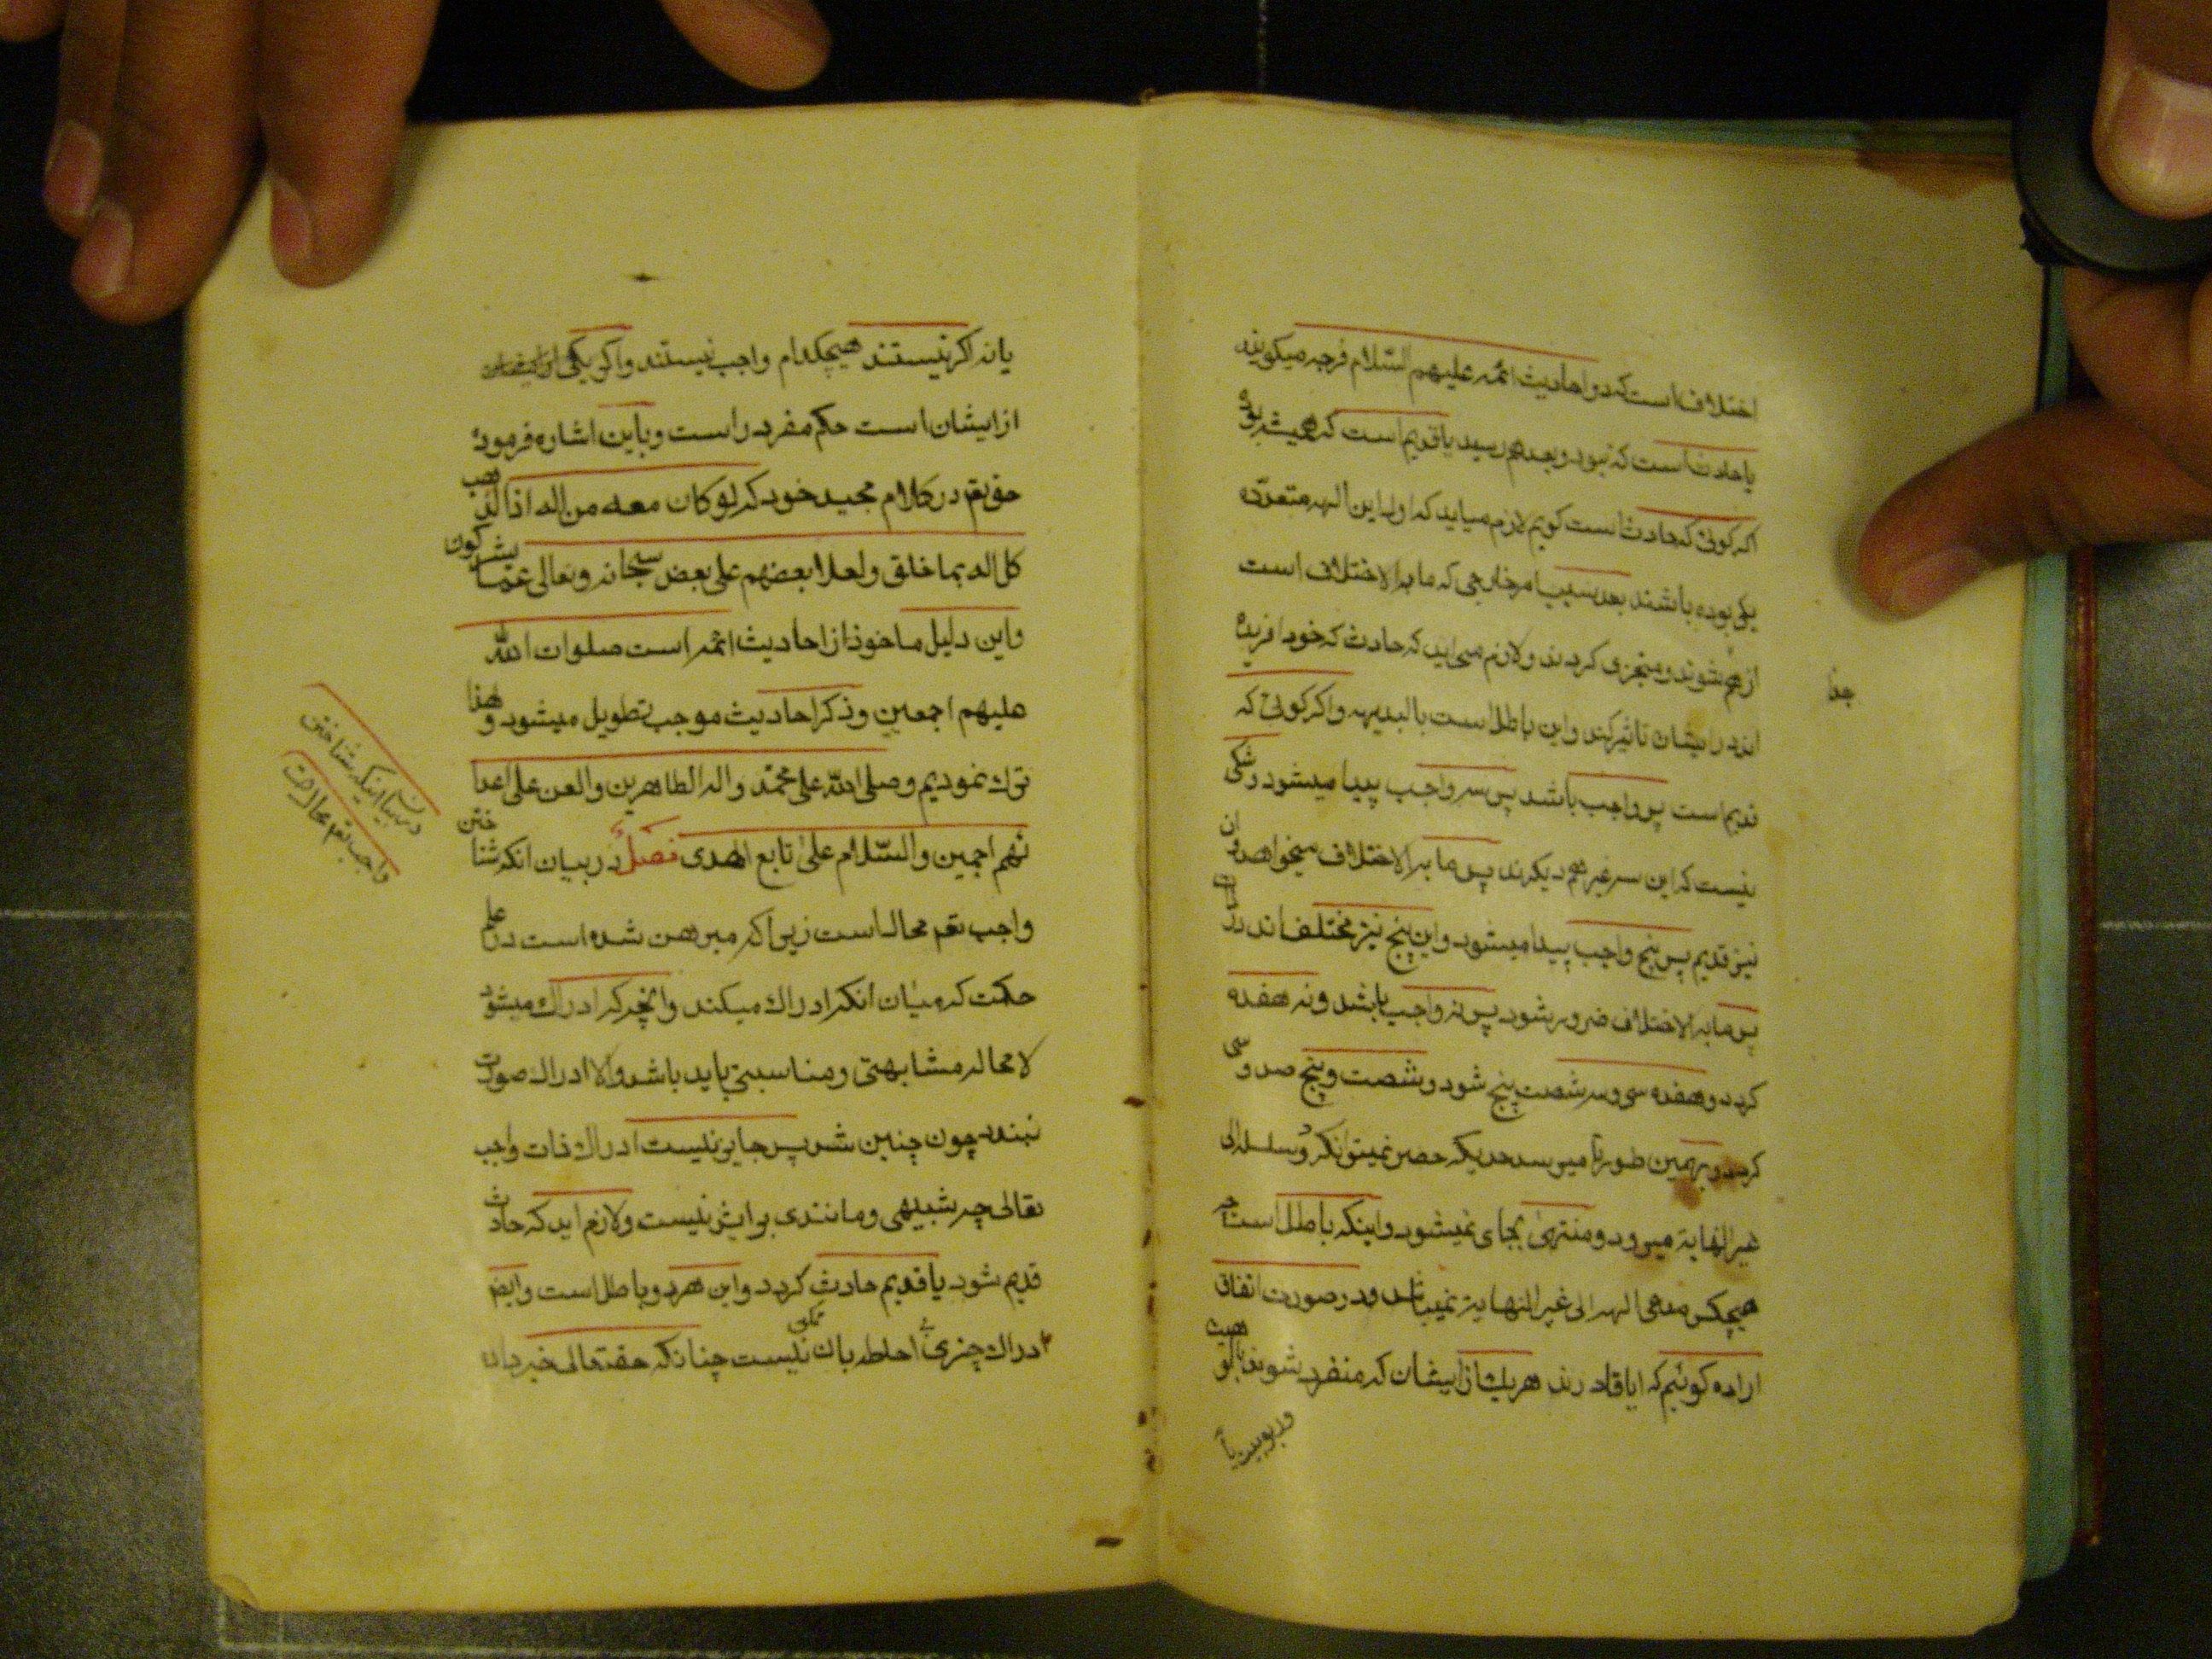 اختلاف است که در احادیث ائمه علیهم السّلام فرجه میکویند
یا حادث است که نبود و بعد بهم رسید یا قدیم است که همیشه بوده
اکر کوئی که حادث است کویم لازم میاید که اول این الهه متعدّده
یکی بوده باشند بعد بسبب امر خارجی که ما به الاختلاف است
از هم شوند و متجزی کردند و لازم می اید که حادث که خود افریده
اند در ایشان تاثیر کند و این باطل است بالبدیهه و اکر کوئی که
جدا
قدیم است پس واجب باشد پس سه واجب پیدا میشود و شکی
نیست که این سه غیر هم دیکرند پس ما به الاختلاف میخواهد و ان
نیز قدیم پس پنج واجب پیدا میشود و این پنج نیز مختلف اند در ذات
پس ما به الاختلاف ضرور شود پس نه واجب باشد و نه هفده
کردد و هفده سی و سه شصت پنج شود و شصت و پنج صد و سی
کردد و بهمین طور تا میرسد بحدیکه حصر نمیتوانکرد و سلسله الی
غیر النهایة میرود و منتهی بجای نمیشود و اینکه باطل است چه
هیچکس مدعی الهه الی غیر النهایة نمیباشد و در صورت اتفاق
اراده کوئیم که ایا قادرند هر یک از ایشان که منفرد شوند بالوهیت
و ربوبیت یا
یا نه اکر نیستند هیچکدام واجب نیستند و اکر یکی
از ایشان است حکم مفرد راست و باین اشاره فرموده
حق تعم در کلام مجید خود که لو کان معه من اله اذا لذهب
کل اله بما خلق و لعلا بعضهم علی بعض سبحانه و تعالی عما یشرکون
و این دلیل ماخوذ از احادیث ائمه است صلوات اللّه
علیهم اجمعین و ذکر احادیث موجب تطویل میشود و لهذا
ترک نمودیم و صلی اللّه علی محمّد و اله الطاهرین و العن علی اعدا
ئهم اجمعین و السّلام علی تابع الهدی فصل در بیان انکه شناختن
واجب تعم محال است زیرا که مبرهن شده است در علم
حکمت که میان انکه ادراک میکند و انچه که ادراک میشود
لا محاله مشابهتی و مناسبتی باید باشد و الا ادراک صورت
نبندد چون چنین شد پس جایز نیست ادراک ذات واجب
تعالی چه شبیهی و مانندی برایش نیست و لازم اید که حادث
قدیم شود یا قدیم حادث کردد و این هر دو باطل است و ایضم
ادراک چیزی بی احاطه بان ممکن نیست چنانکه حقتعالی خبر داده
در بیان اینکه شناختن
واجب تعم محال است